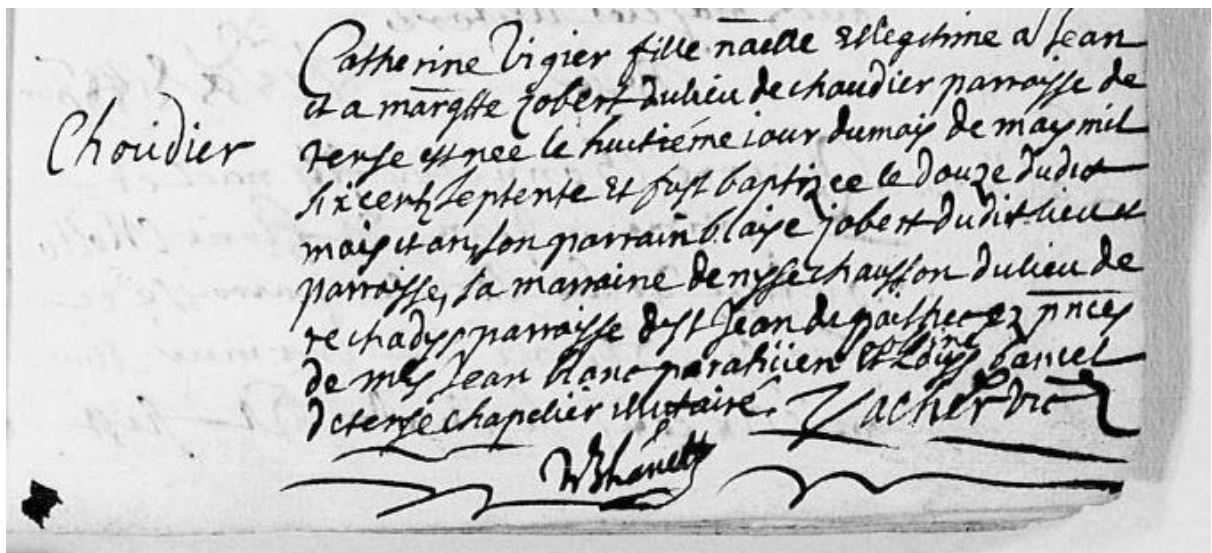 Catherine Vigier fille naelle et legitime a Jean
Choudier
et a margtte Jobert du lieu de chaudier parroisse de
terse est nee le huitiéme iour du mois de may mil
six cent septente et fust baptizee le douze dudit
mois et an, son parrain blaise Jobert dudit lieu et
parroisse, sa marraine denysse chausson du lieu de
parroisse de st Jean de es pnces
de mes Jean blanc et Loüys bancel
de terse chapelier. Vacher vic